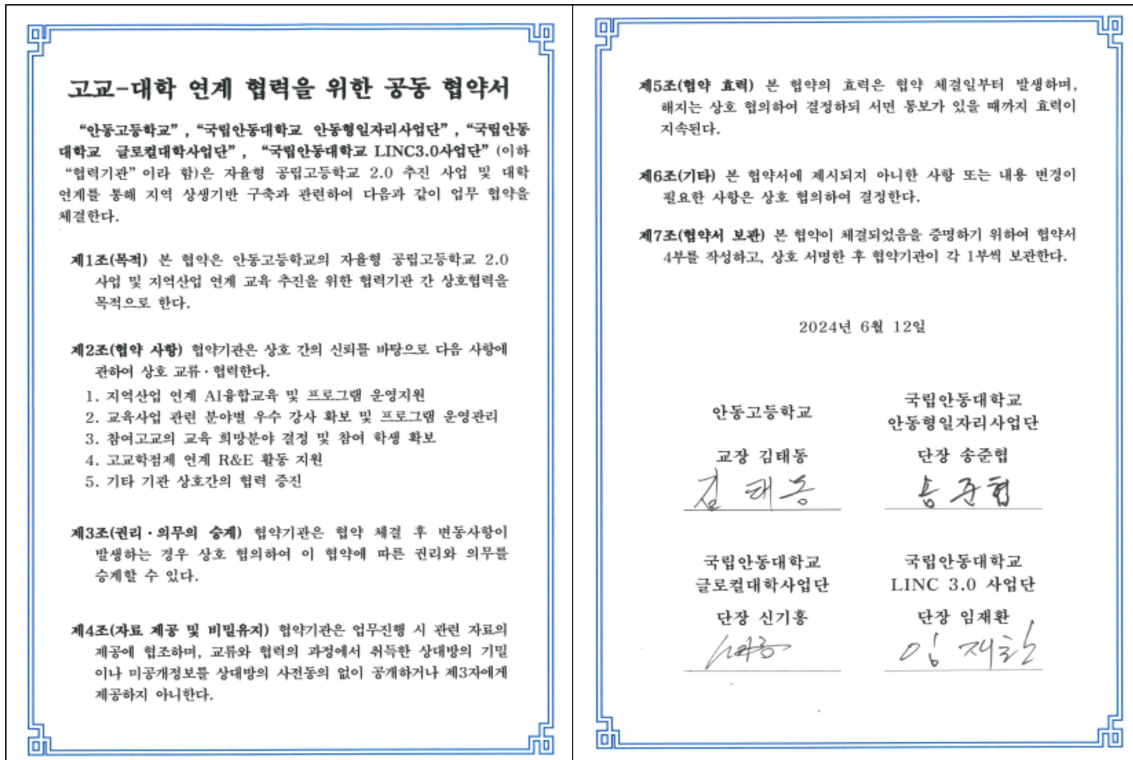 고교-대학 연계 협력을 위한 공동 협약서
"안동고등학교", "국립안동대학교 안동형일자리사업단", "국립안동
대학교 글로컬대학사업단", "국립안동대학교 LINC3.0사업단" (이하
"협력기관" 이라 함)은 자율형 공립고등학교 2.0 추진 사업 및 대학
연계를 통해 지역 상생기반 구축과 관련하여 다음과 같이 업무 협약을
체결한다.
제1조(목적) 본 협약은 안동고등학교의 자율형 공립고등학교 2.0
사업 및 지역산업 연계 교육 추진을 위한 협력기관 간 상호협력을
목적으로 한다.
제2조(협약 사항) 협약기관은 상호 간의 신뢰를 바탕으로 다음 사항에
관하여 상호 교류·협력한다.
1. 지역산업 연계 AI융합교육 및 프로그램 운영지원
2. 교육사업 관련 분야별 우수 강사 확보 및 프로그램 운영관리
3. 참여고교의 교육 희망분야 결정 및 참여 학생 확보
4. 고교학점제 연계 R&E 활동 지원
5. 기타 기관 상호간의 협력 증진
제3조(권리·의무의 승계) 협약기관은 협약 체결 후 변동사항이
발생하는 경우 상호 협의하여 이 협약에 따른 권리와 의무를
승계할 수 있다.
제4조(자료 제공 및 비밀유지) 협약기관은 업무진행 시 관련 자료의
제공에 협조하며, 교류와 협력의 과정에서 취득한 상대방의 기밀
이나 미공개정보를 상대방의 사전동의 없이 공개하거나 제3자에게
제공하지 아니한다.
제5조(협약 효력) 본 협약의 효력은 협약 체결일부터 발생하며,
해지는 상호 협의하여 결정하되 서면 통보가 있을 때까지 효력이
지속된다.
제6조(기타) 본 협약서에 제시되지 아니한 사항 또는 내용 변경이
필요한 사항은 상호 협의하여 결정한다.
제7조(협약서 보관) 본 협약이 체결되었음을 증명하기 위하여 협약서
4부를 작성하고, 상호 서명한 후 협약기관이 각 1부씩 보관한다.
2024년 6월 12일
안동고등학교
교장 김태동
김태동
국립안동대학교
안동형일자리사업단
단장 송준협
송준협
국립안동대학교
글로컬대학사업단
단장 신기홍
국립안동대학교
LINC 3.0 사업단
단장 임재환
임재환